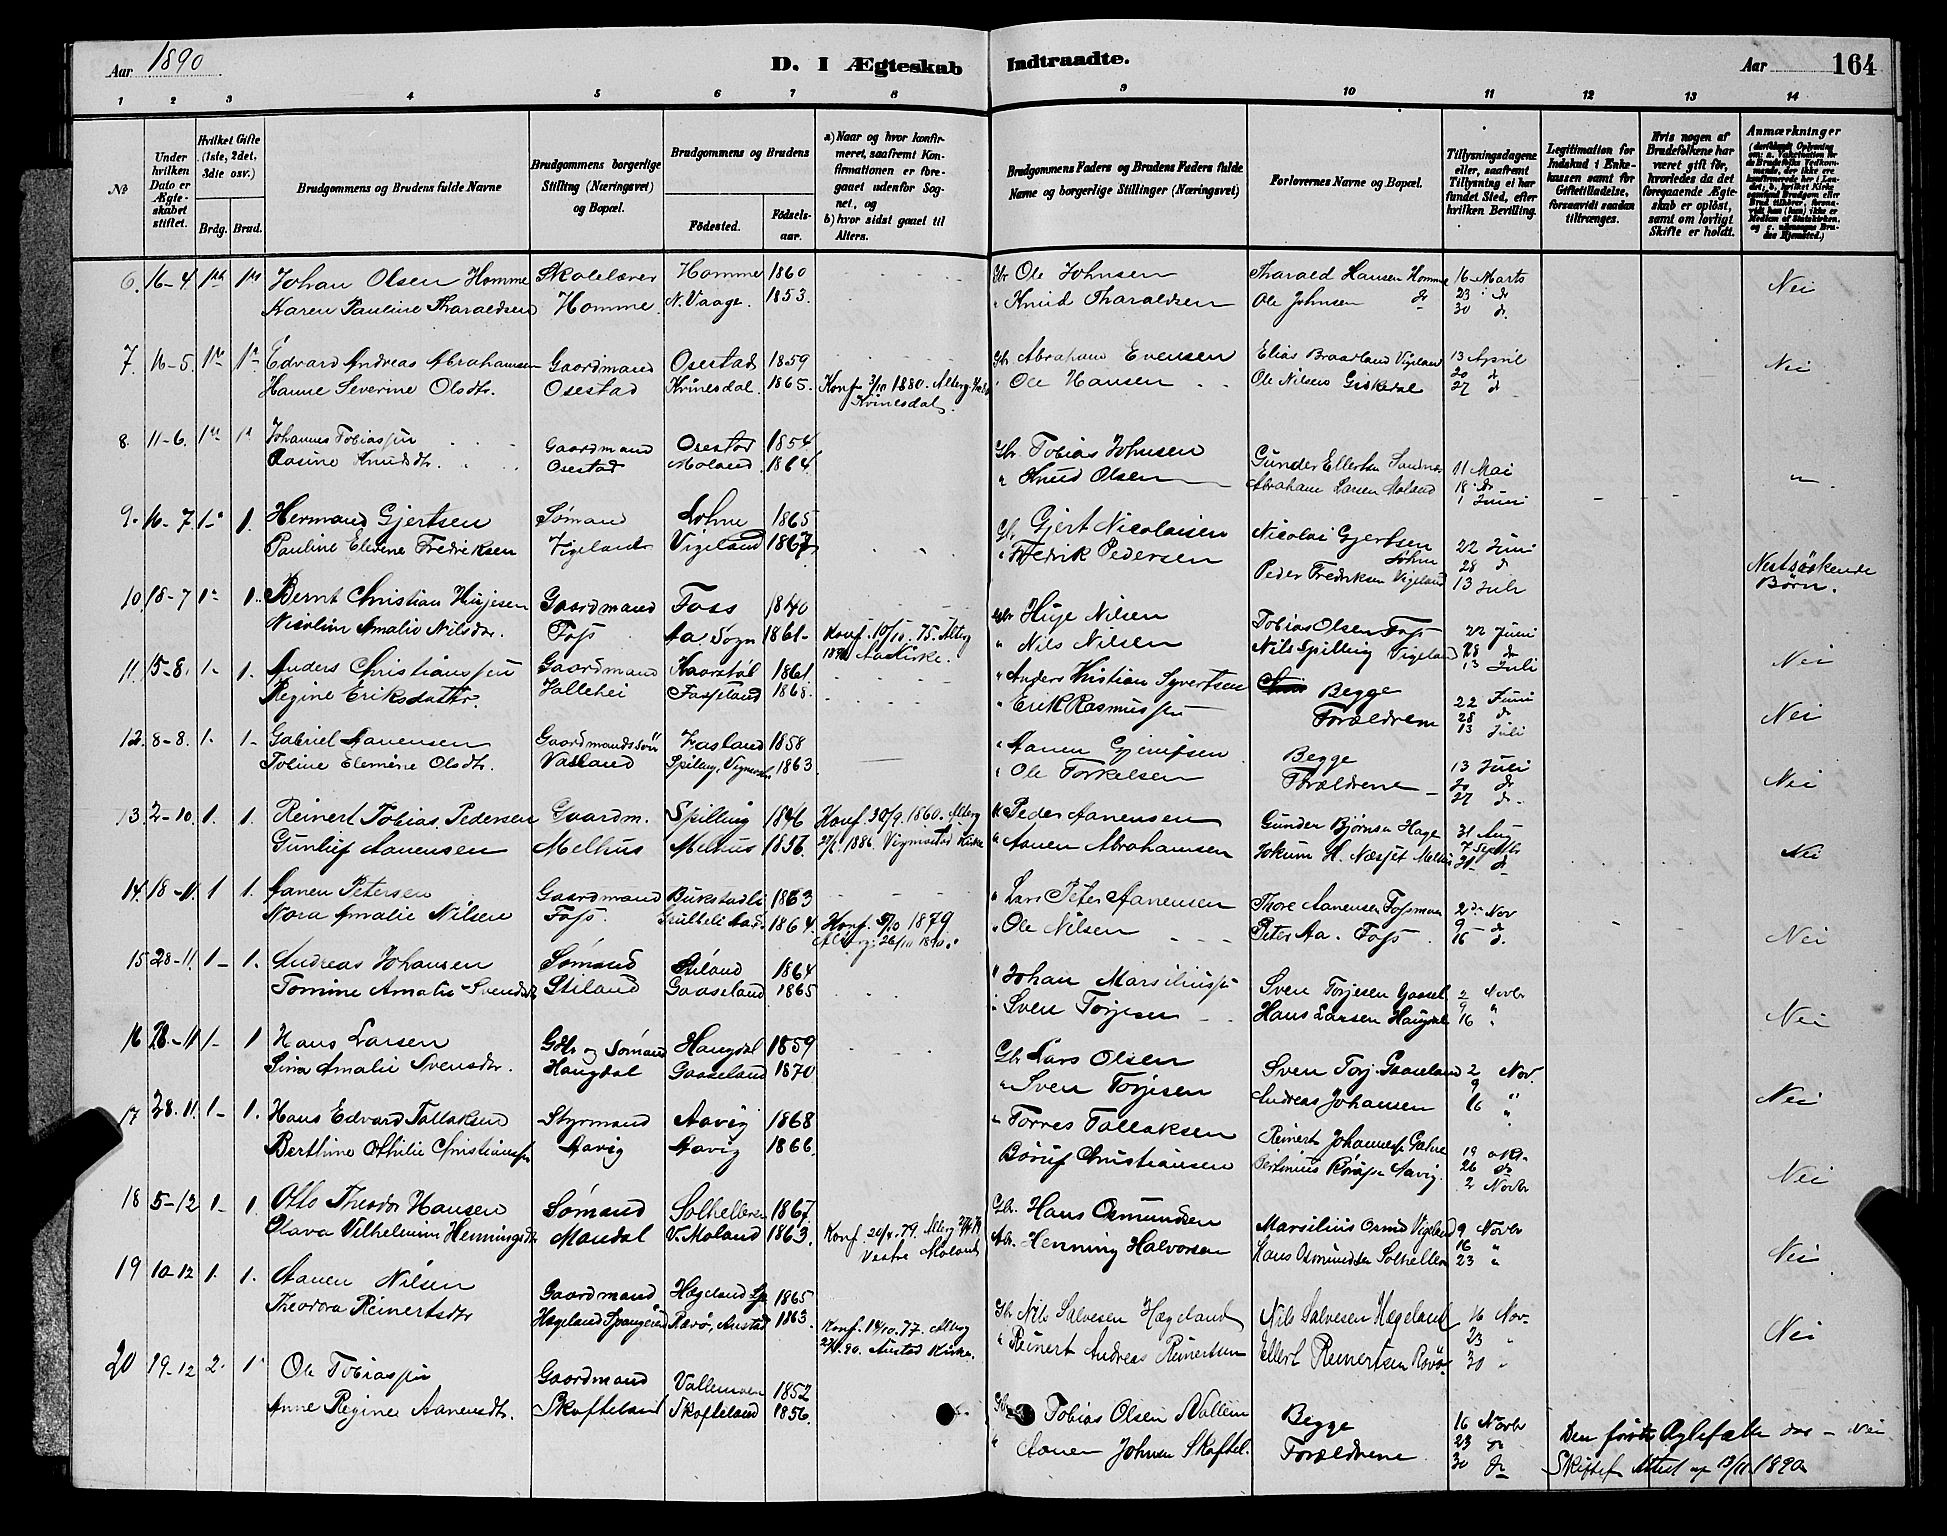 Aar 1890 D. I Ægteskab Indtraadte. Aar 164
1 2 3 4 5 6 7 8 9 10 11 12 13 14
No
Under hvilken Dato er Ægteskabet stiftet.
Hvilket Gifte (1ste, 2det, 3die osv.)
Brdg. Brud.
Brudgommens og Brudens fulde Navne
Brudgommens borgerlige Stilling (Næringsvei) og Bopæl.
Brudgommens og Brudens
Födested. Födselsaar.
a) Naar og hvor konfirmeret, saafremt Konfirmationen er foregaaet udenfor Sognet, og
b) hvor sidst gaaet til Alters.
Brudgommens Faders og Brudens Faders fulde Navne og borgerlige Stillinger (Næringsvei)
Forlovernes Navne og Bopæl.
Tillysningsdagene eller, saafremt Tillysning ei har fundet Sted, efter hvilken Bevilling.
Legitimation for Indskud i Enkekassen samt for Giftetilladelse, forsaavidt saadan tiltrænges.
Hvis nogen af Brudefolkene har været gift för, hvorledes da det foregaaende Ægteskab er oplöst, samt om lovligt Skifte er holdt.
Anmærkninger
6. 16-4 1ste 1ste Johan Olsen Homme Skolelærer Homme 1860 Gbr Ole Johnsen Tharald Hansen Homme 16 Marts
Karen Pauline Tharaldsen Homme. N. Vaage. 1853. " Knud Tharaldsen Ole Johnsen do 23 do Nei
30 d.
7. 16-5. 1ste 1ste Edvard Andreas Abrahamsen Gaardmand Osestad 1859 Gbr Abraham Evensen Elias Braarland Vigeland 13 April
Hanne Severine Olsdtr. Osestad Kvinesdal 1865. Konf 3/10 1880. Alterg. " Ole Hansen Ole Nilsens Giskedal 20 d Nei
Kvinesdal. 27 d
8. 11-6. 1ste 1ste Johannes Tobiassen Gaardmand Osestad 1854 Gbr. Tobias Johnsen Gunder Ellertsen 11 Mai
Rasine Knudsdtr. Osestad Moland. 1864 " Knud Olsen Abraham Larsen Moland 18 d "
1 Juni
9. 16-7. 1- 1. Hermand Gjertsen Sømand Lohne 1865 Gbr. Gjert Nicolaisen Nicolai Gjertsen Lohne 22 Juni
Pauline Elevine Fredriksen Vigeland Vigeland 1867 " Fredrik Pedersen Peder Fredriksen Vigeland 28 d Nestsøskende Børn.
13 Juli
10 18-7 1- 1.. Bernt Christian Hujesen Gaardmand Foss 1840 Gbr Huje Nilsen Tobias Olsen Foss 22 Juni
Nicoline Amalie Nilsdtr. Foss Aa Sogn 1861- Konf. 10/10. 75. Alterg " Nils Nilsen Nils Spilling Vigeland 28 d Nei
Aa Kirke. 13 Juli
11. 15-8. 1- 1. Anders Christianssen Gaardmand 1861 " Anders Kristian Syvertsen Begge 22 Juni
Regine Eriksdatter. Vallehei Fasseland 1868. " Erik Rasmussen Forældrene 28 d Nei
13 Juli
12. 8-8. 1. 1- Gabriel Aanensen Gaardmandssön 1858 " Aanen Begge 13 Juli
Toline Elemine Olsdtr. Vasland Spiling, 1863. " Ole Torkelsen Forældrene 20 d Nei
27 d.
13. 2-10. 1. 1. Reinert Tobias Pedersen Gaardm. Spilling 1846 Konf. 30/9. 1860. Alterg " Peder Aanensen Gunder Bjørnsen Hage 31 Aug
Gunlef Aanensen Melhus Melhus 1856. 1886. Vigmostad Kirke " Aanen Abrahamsen Jokum H. Næsset 7 Septbr Nei
21 d
14. 18-11. 1 1. Aanen Petersen Gaardmand Birkstadli 1863 " Lars Peter Aanensen Thore Aanensen Fossmoen 2 Nov
Nora Amalie Nilsen Foss. 1864. Konf. 5/10 1879. " Ole Nilsen Peter Aa. Foss. 9 d Nei
Alterg: 26/10 1890. 16 d.
15 28-11. 1- 1. Andreas Johansen Sømand Stiland 1864 " Johan Marsiliussen Sven Torjesen Gaasel. 2 Novbr
Tomine Amalie Svendsdtr Stiland Gaaseland 1865 " Sven Torjesen Hans Larsen Haugdal 9 " Nei
16 "
16 28-11 1- 1 Hans Larsen Gdbr og Sømand Haugdal 1859 Gbr Lars Olsen Sven Torj. Gaaseland 2 Nov.
Sina Amalie Svensdtr. Haugdal Gaaseland 1870 " Sven Torjesen Andreas Johansen 9 " Nei
16 "
17 28.11. 1- 1. Hans Edvard Tallaksen Styrmand Aavig 1868 " Torres Tallaksen Reinert Johannessen 19 okt.
Berthine Othilie Christianssen Aavig Aavig 1866. Børuf Christiansen Aavig. 26 do Nei
2 Novbr
18 5-12 1- 1. Otto Theodor Hansen Sømand Solhelleren 1867 Gbr. Hans Osmundsen Marsilius Osmd Vigeland 9 Novbr
Olava Vilhelmine Henningsdtr Mandal V. Moland 1863. Konf. 20/4. 79. Alterg Henning Halvorsen Hans Osmundsen Solhelleren 16 " Nei
Vestre Moland 23 "
19 10-12 1. 1. Aanen Nilsen Gaardmand Hægeland 1865 Gbr Nils Salvesen Hægeland Nils Salvesen Hægeland 16 Nov.
Theodora Reinertsdtr Hægeland Spangereid Rævø, Austad 1863. Konf. 14/10. 77. Alterg " Reinert Andreas Reinertsen Ellert Reinertsen Rævø 23 " Nei
Austad Kirke. 30 "
20 19-12 2. 1. Ole Tobiassen Gaardmand Vallemoen 1852 Tobias Olsen Vallem Begge 16 Novbr
Anne Regine Aanensdtr. Skofteland Skofteland 1856. " Aanen Johnsen Skoftel. Forældrene 23 do Den første Ægtefælle død - Nei
30 do Skiftef. Attest af 13/11 1890